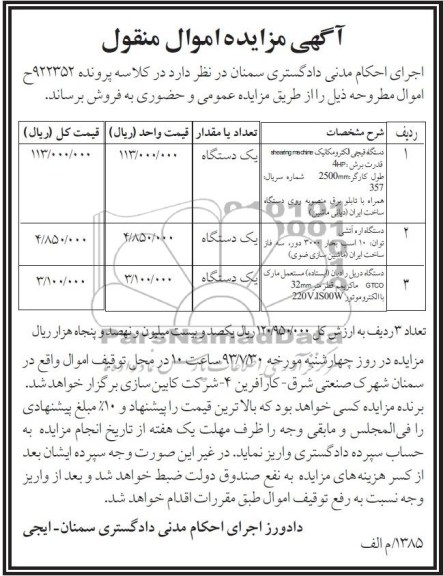 آگهی مزایده اموال منقول
اجرای احکام مدنی دادگستری سمنان در نظر دارد در کلاسه پرونده ۹۲۲۳۵۲ح
اموال مطروحه ذیل را از طریق مزایده عمومی و حضوری به فروش برساند.
ردیف شرح مشخصات تعداد یا مقدار قیمت واحد (ریال) قیمت کل (ریال)
۱ دستگاه قیچی الکترومکانیک shearing machine یک دستگاه ۱۱۳/۰۰۰/۰۰۰ ۱۱۳/۰۰۰/۰۰۰
قدرت برش: 4HP
طول کارگر: 2500mm شماره سریال:
357
همراه با تابلو برق منصوبه روی دستگاه
ساخت ایران (دیانی ماشین)
۲ دستگاه اره آتشی یک دستگاه ۴/۸۵۰/۰۰۰ ۴/۸۵۰/۰۰۰
توان: ۱۰ اسب بخار ۳۰۰۰ دور، سه فاز
ساخت ایران (ماشین سازی رضوی)
۳ دستگاه دریل رادیان (ایستاده) مستعمل مارک یک دستگاه ۳/۱۰۰/۰۰۰ ۳/۱۰۰/۰۰۰
GTCO ماکزیمم قطر مته 32mm
با الکتروموتور 220V.1500W
تعداد ۳ ردیف به ارزش کل ۱۲۰/۹۵۰/۰۰۰ ریال یکصد و بیست میلیون و نهصد و پنجاه هزار ریال
مزایده در روز چهارشنبه مورخه ۹۳/۷/۳۰ ساعت ۱۰ در محل توقیف اموال واقع در
سمنان شهرک صنعتی شرق- کارآفرین ۴- شرکت کابین سازی برگزار خواهد شد.
برنده مزایده کسی خواهد بود که بالاترین قیمت را پیشنهاد و ۱۰٪ مبلغ پیشنهادی
را فی‌المجلس و مابقی وجه را ظرف مهلت یک هفته از تاریخ انجام مزایده به
حساب سپرده دادگستری واریز نماید. در غیر این صورت وجه سپرده ایشان بعد
از کسر هزینه‌های مزایده به نفع صندوق دولت ضبط خواهد شد و بعد از واریز
وجه نسبت به رفع توقیف اموال طبق مقررات اقدام خواهد شد.
دادورز اجرای احکام مدنی دادگستری سمنان- ایجی
۱۳۸۵/م الف